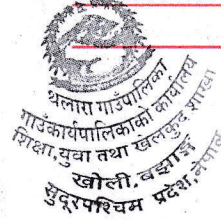 थलारा गाउँपालिका
गाउँकार्यपालिकाको कार्यालय
शिक्षा,युवा तथा खेलकुद शाखा
खोली, बझाङ
सुदूरपश्चिम प्रदेश, नेपाल